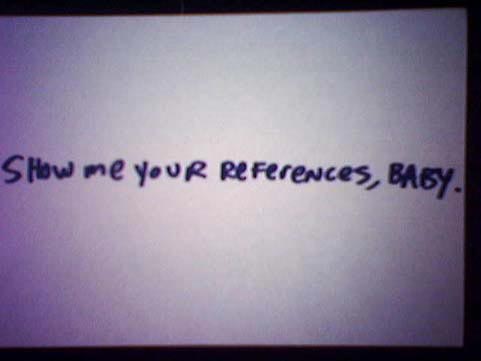 SHOW me YOUR ReFereNCES, BABY.